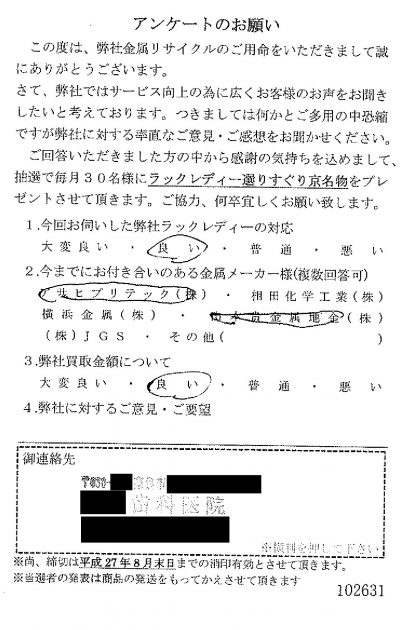 アンケートのお願い
この度は、弊社金属リサイクルのご用命をいただきまして誠
にありがとうございます。
さて、弊社ではサービス向上の為に広くお客様のお声をお聞き
したいと考えております。つきましては何かとご多用の中恐縮
ですが弊社に対する率直なご意見・ご感想をお聞かせください。
ご回答いただきました方の中から感謝の気持ちを込めまして、
抽選で毎月30名様にラックレディー選りすぐり京名物をプレ
ゼントさせて頂きます。ご協力、何卒宜しくお願い致します。
1.今回お伺いした弊社ラックレディーの対応
大変良い・良い・普通・悪い
2.今までにお付き合いのある金属メーカー様(複数回答可)
ヒブリテック(株)・相田化学工業(株)
横浜金属(株)・貴金属地金(株)
(株)JGS・その他( )
3.弊社買取金額について
大変良い・良い・普通・悪い
4.弊社に対するご意見・ご要望
御連絡先
歯科医院
を押して下さい
※尚、締切は平成27年8月末日までの消印有効とさせて頂きます。
※当選者の発表は商品の発送をもってかえさせて頂きます
102631